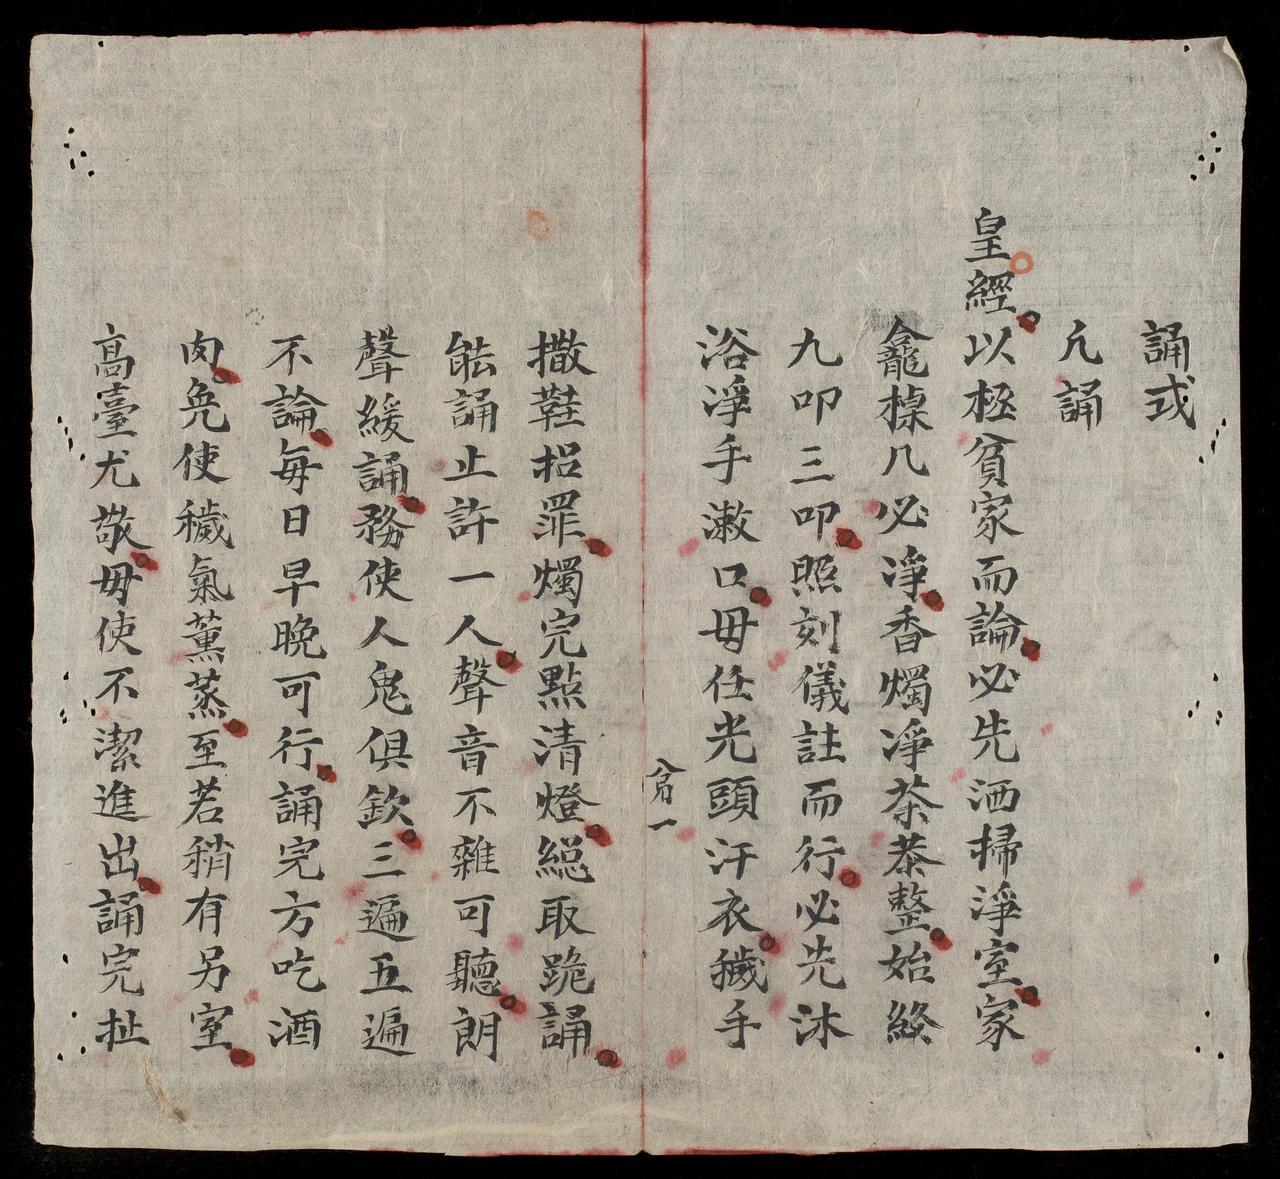 誦式
凢誦
皇經以極貧家而論必先洒掃淨室家
龕槕几必淨香燭淨茶恭整始終
九叩三叩照刻儀註而行必先沐
浴淨手漱口毋任光頭汗衣穢手
貧一
撒鞋招罪燭完點清燈総取跪誦
能誦止許一人聲音不雜可聽朗
聲緩誦務使人鬼俱欽三遍五遍
不論每日早晚可行誦完方吃酒
肉免使穢氣薰蒸至若稍有另室
髙臺尤敬毋使不潔進出誦完扯